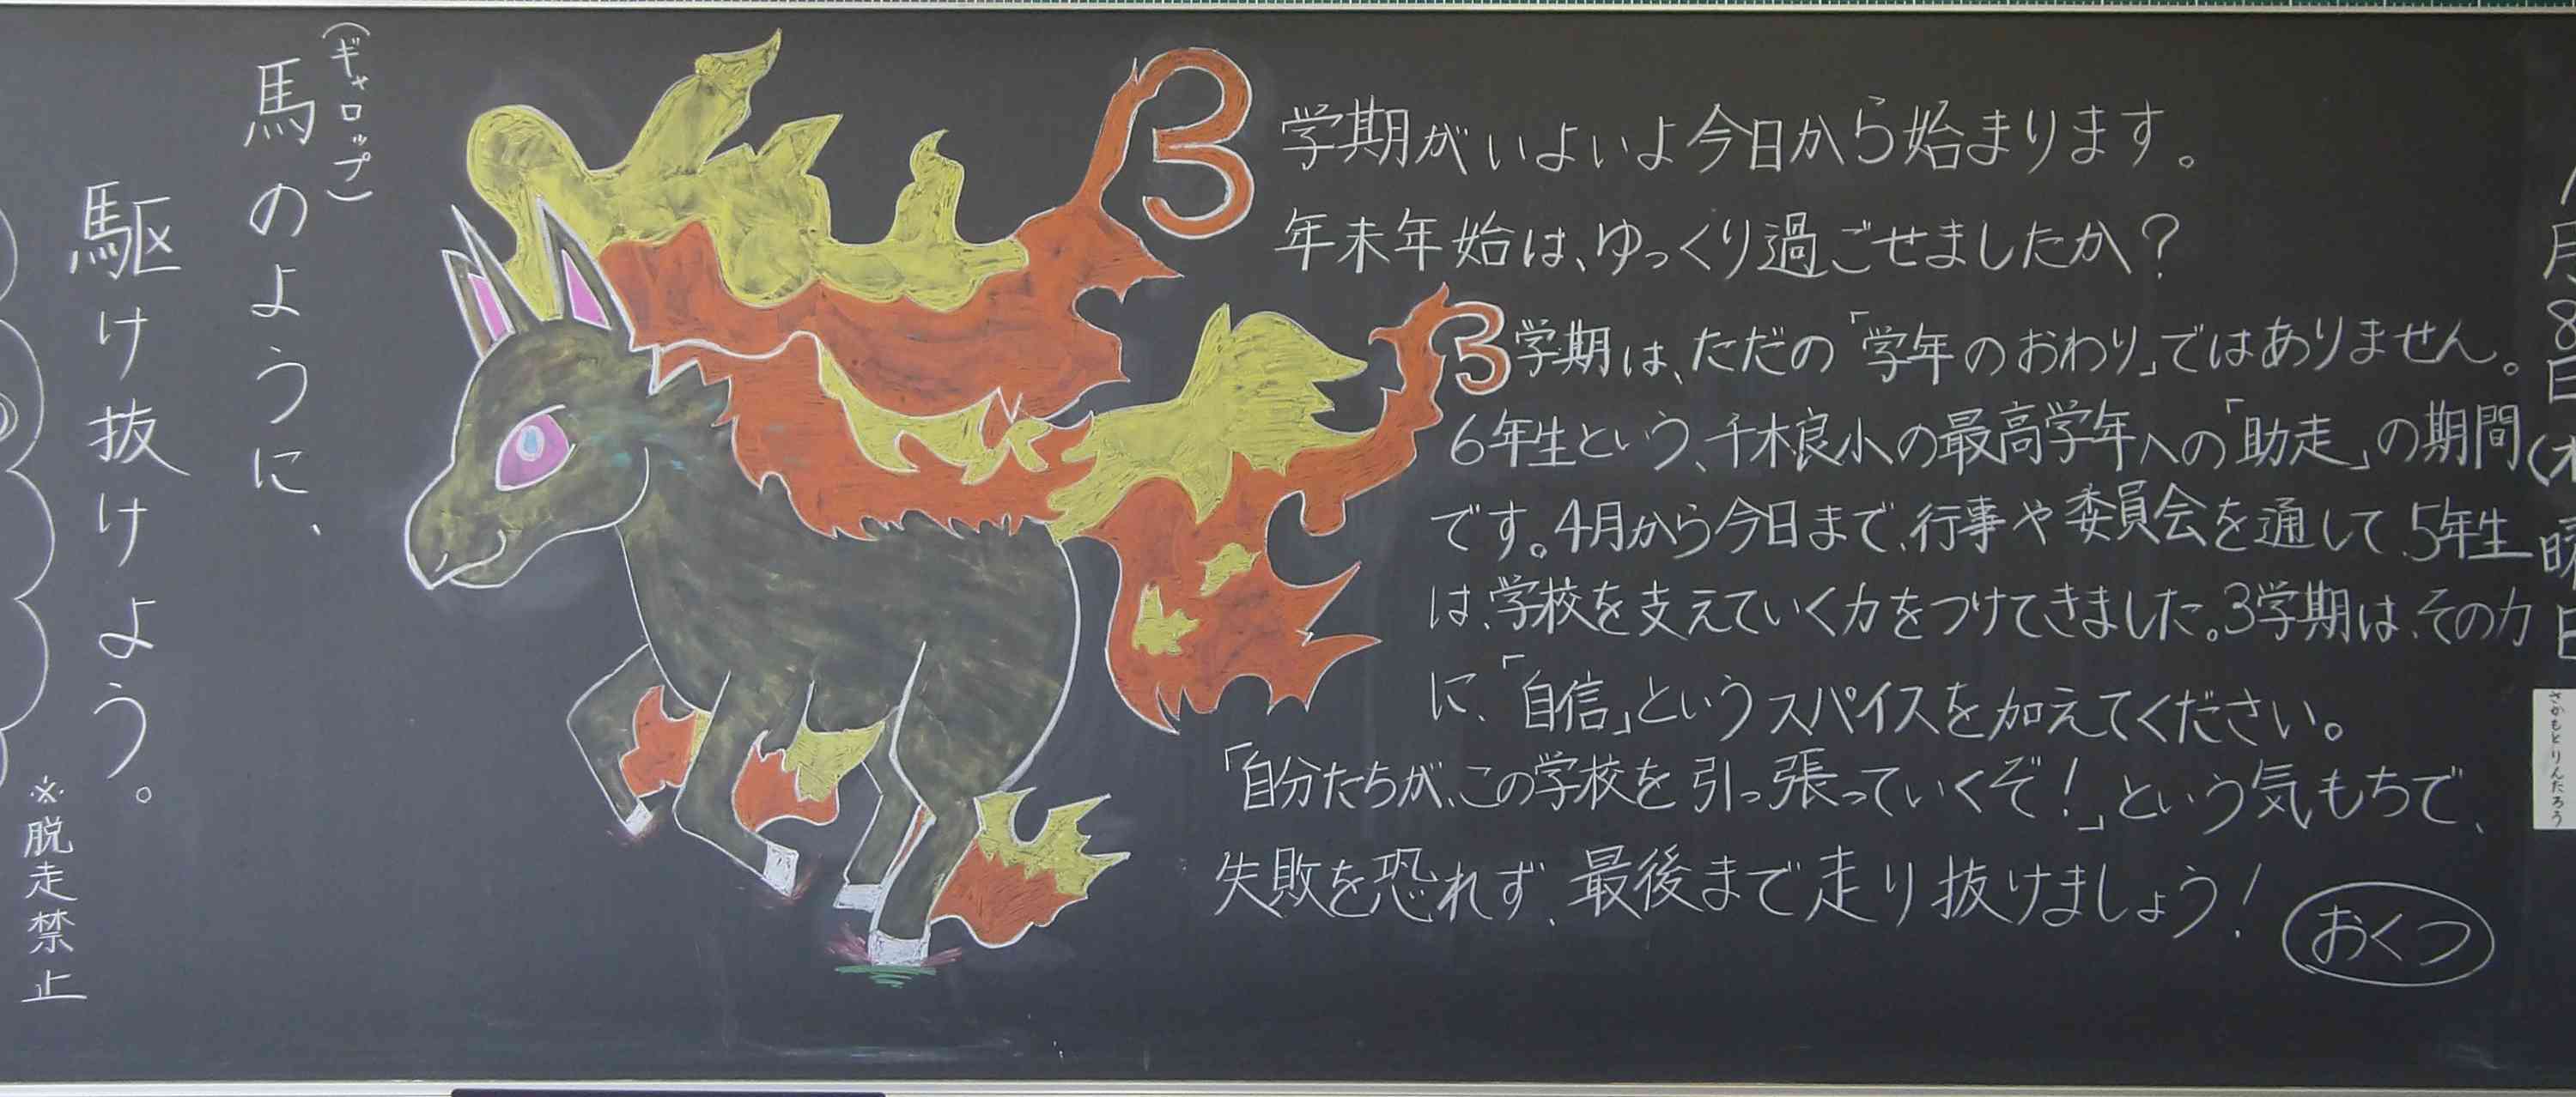 3学期がいよいよ今日から始まります。
年末年始は、ゆっくり過ごせましたか？
3学期は、ただの「学年のおわり」ではありません。
6年生という、千木良小の最高学年への「助走」の期間
です。4月から今日まで、行事や委員会を通して、5年生
は、学校を支えていく力をつけてきました。3学期は、その力
に、「自信」というスパイスを加えてください。
「自分たちが、この学校を引っ張っていくぞ！」という気もちで、
失敗を恐れず、最後まで走り抜けましょう！
おくつ
(ギャロップ)
馬のように、
駆け抜けよう。
※脱走禁止
月8日(木曜日
さかもとりんたろう